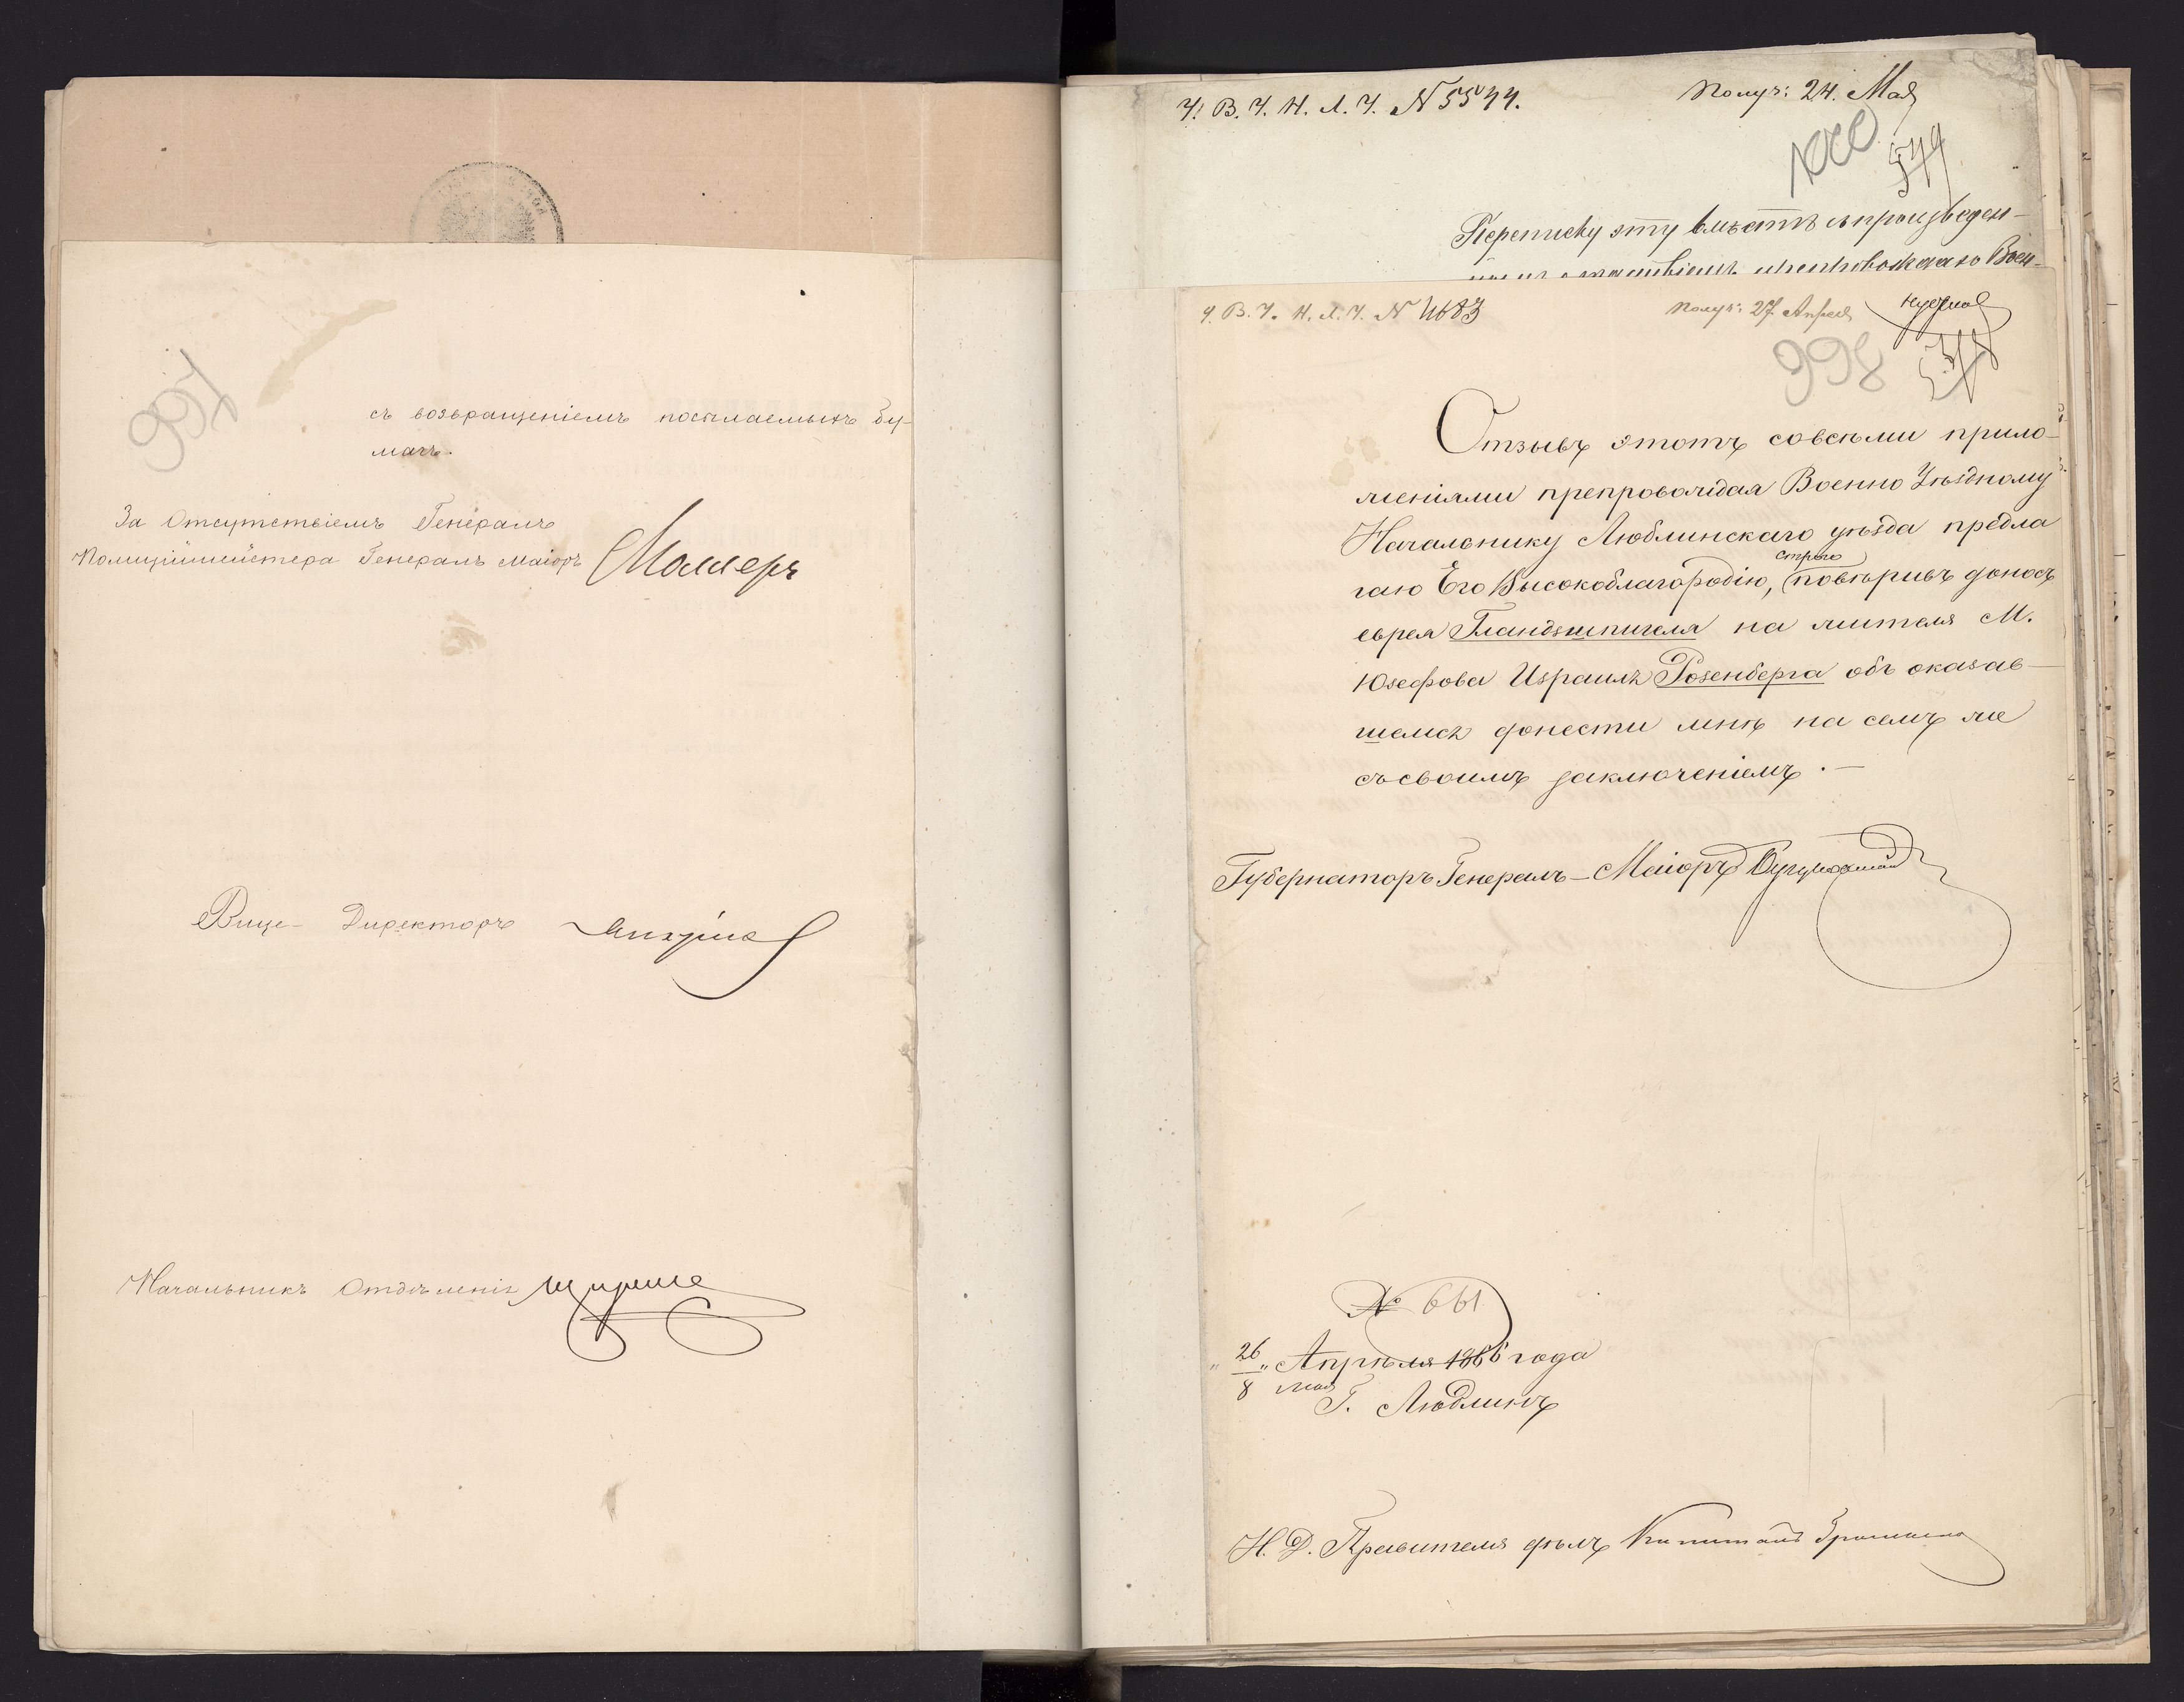 997
съ возвращеніемъ посылаемыхъ бу-
магъ.
За Отсутствіемъ Генералъ
Полиціймейстера Генералъ Маіоръ
Вице-Директоръ
Начальникъ Отдѣленія
У. В. У. Н. Л. У. N 5544.
Получ: 24. Мая
1000
549
Переписку эту вмѣстѣ съ произведен-
препровождаю Воен-
У. В. У. Н. Л. У. N 4683
Получ: 27. Апреля
998
Отзывъ этотъ со всѣми прило-
женіями препровождая Военно Уѣздному
Начальнику Люблинскаго уѣзда предла
гаю Его Высокоблагородію, строго повѣривъ доносъ
еврея Гландзшпигеля на жителя М.
Юзефова Израиля Розенберга объ оказав-
шемся донести мнѣ на семъ же
съ своимъ заключеніемъ.—
Губернаторъ Генералъ-Маіоръ
№ 661
"26/8" Апрѣля Мая 1866 года
Г. Люблинъ
И. Д. Правителя дѣлъ Капитанъ